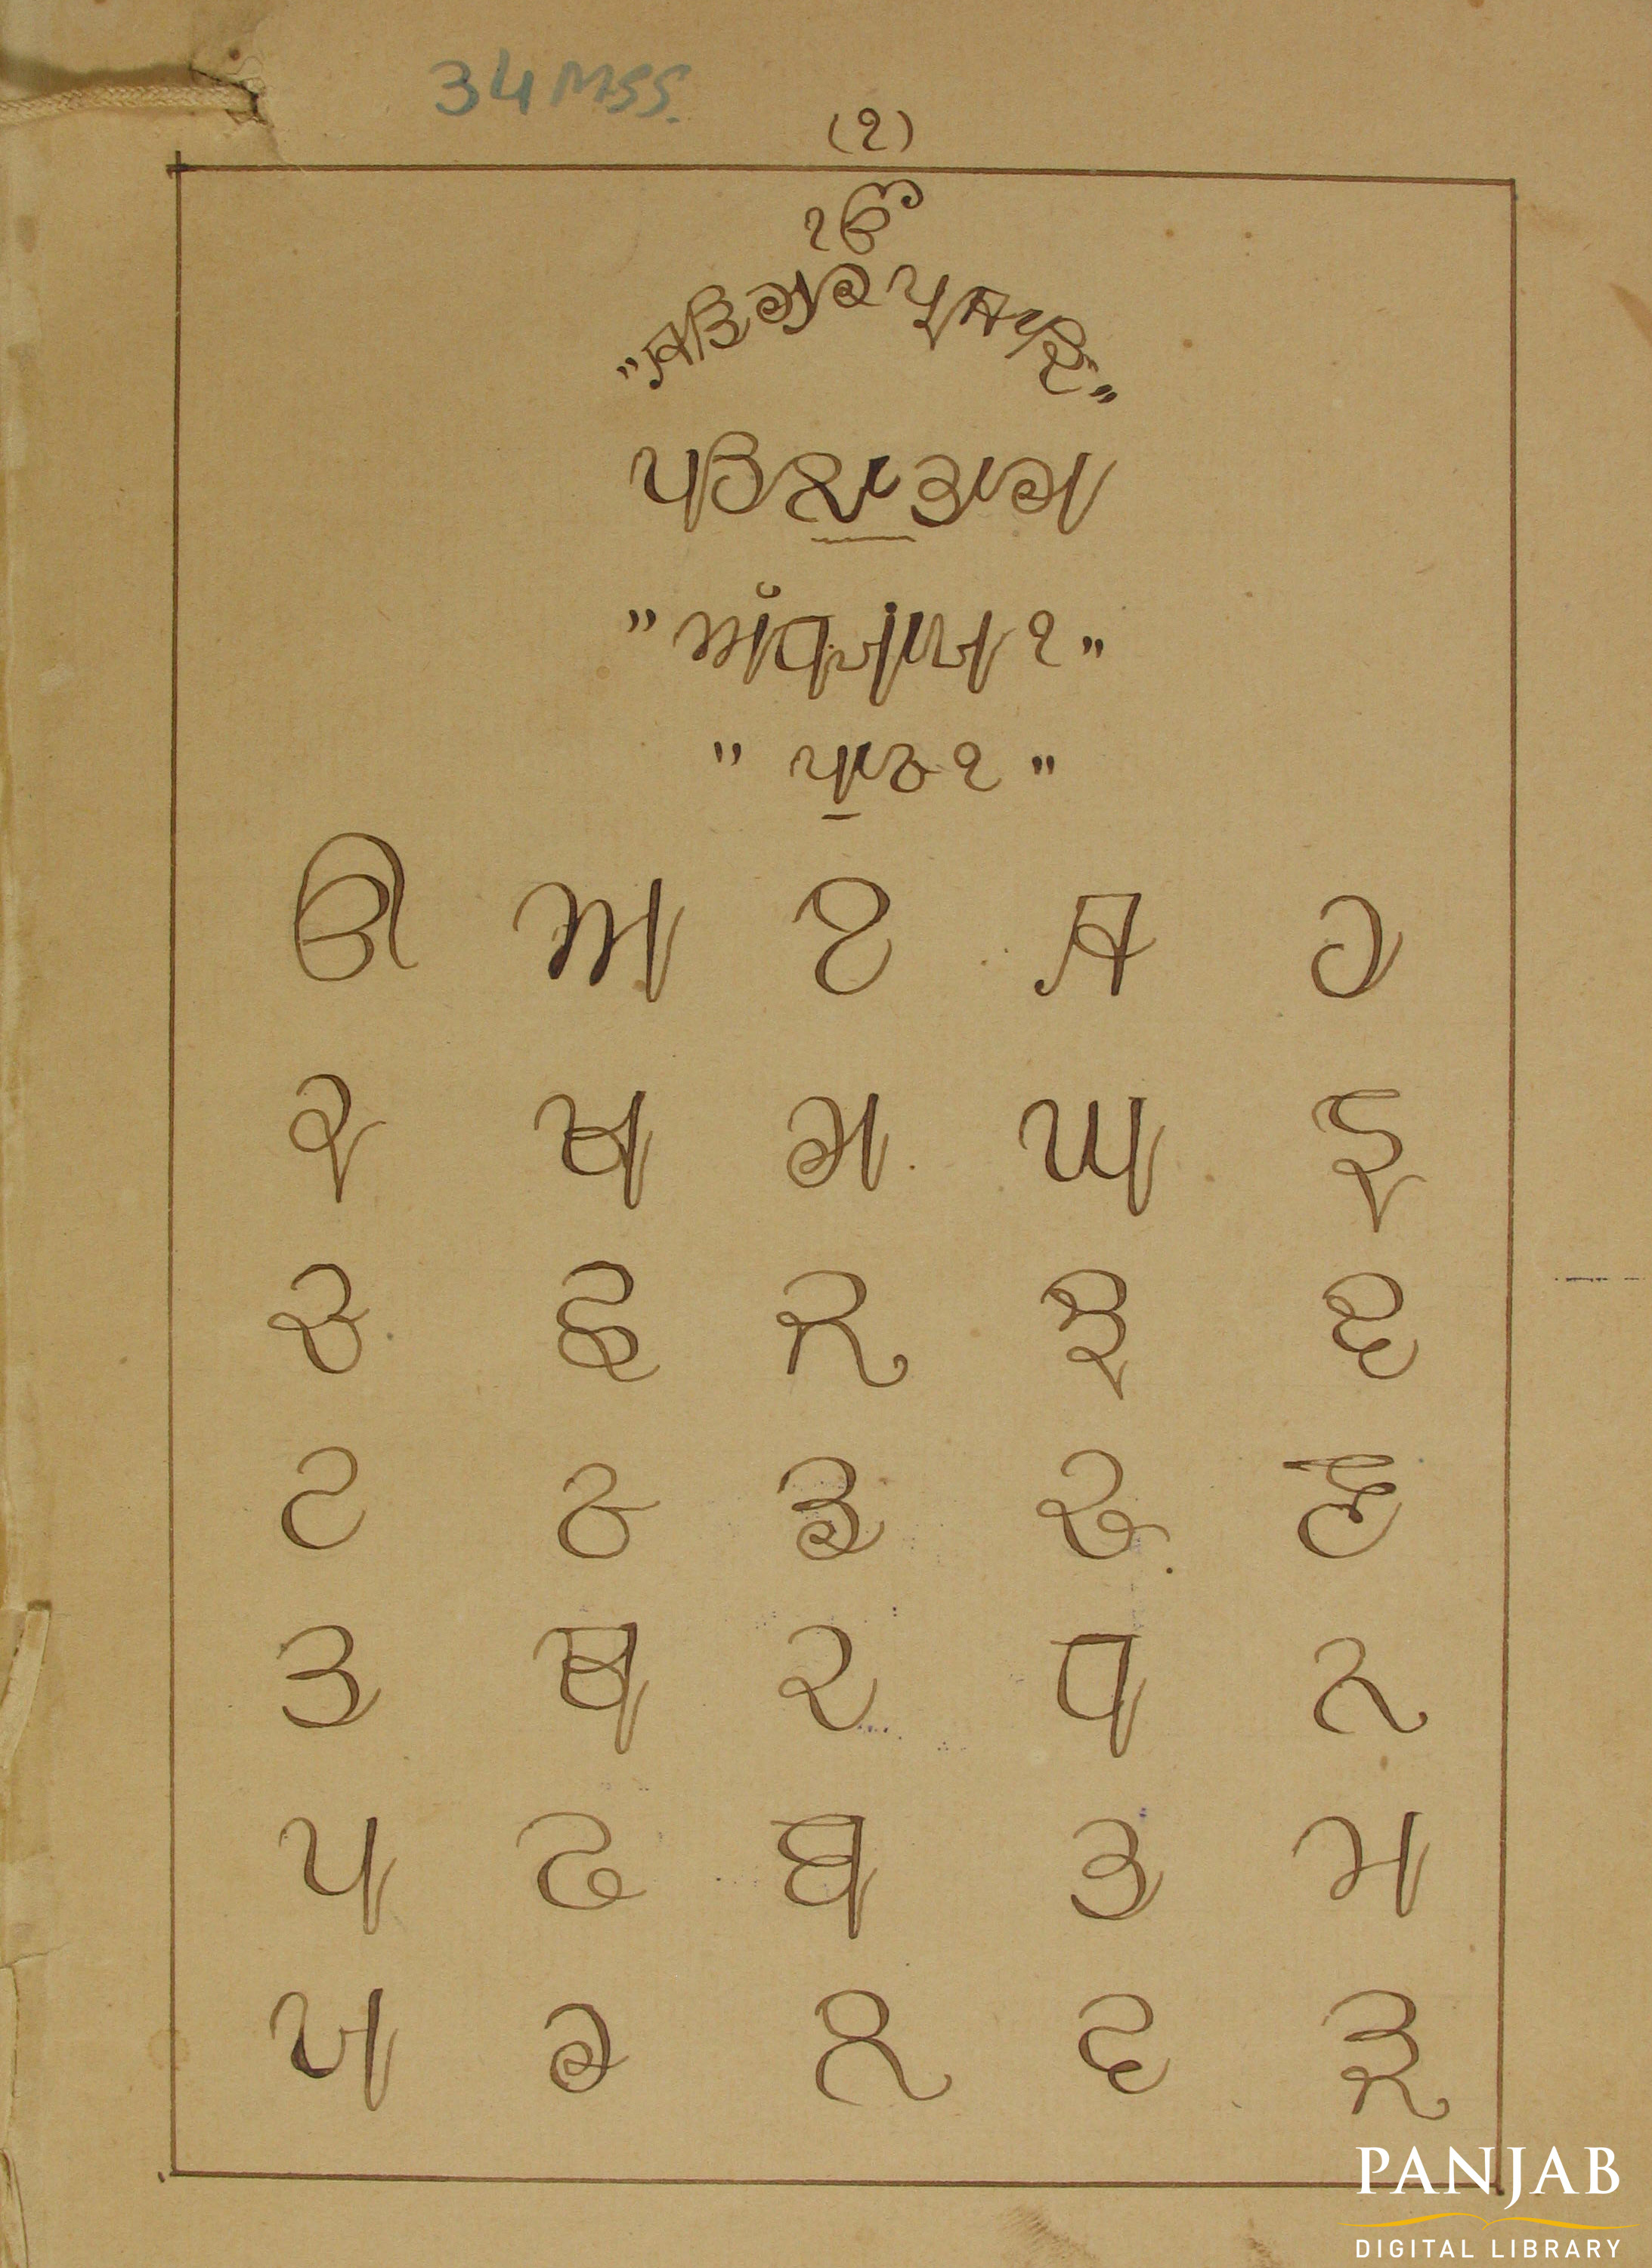 34 MSS.
(੧)
ੴ
"ਸਤਿਗੁਰ ਪ੍ਰਸਾਦਿ"
ਪਹਿਲਾ ਭਾਗ
੧"
"ਪਾਠ ੧"
ੳ ਅ ੲ ਸ ਹ
ਕ ਖ ਗ ਘ ਙ
ਚ ਛ ਜ ਝ ਞ
ਟ ਠ ਡ ਢ ਣ
ਤ ਥ ਦ ਧ ਨ
ਪ ਫ ਬ ਭ ਮ
ਯ ਰ ਲ ਵ ੜ
PANJAB
DIGITAL LIBRARY